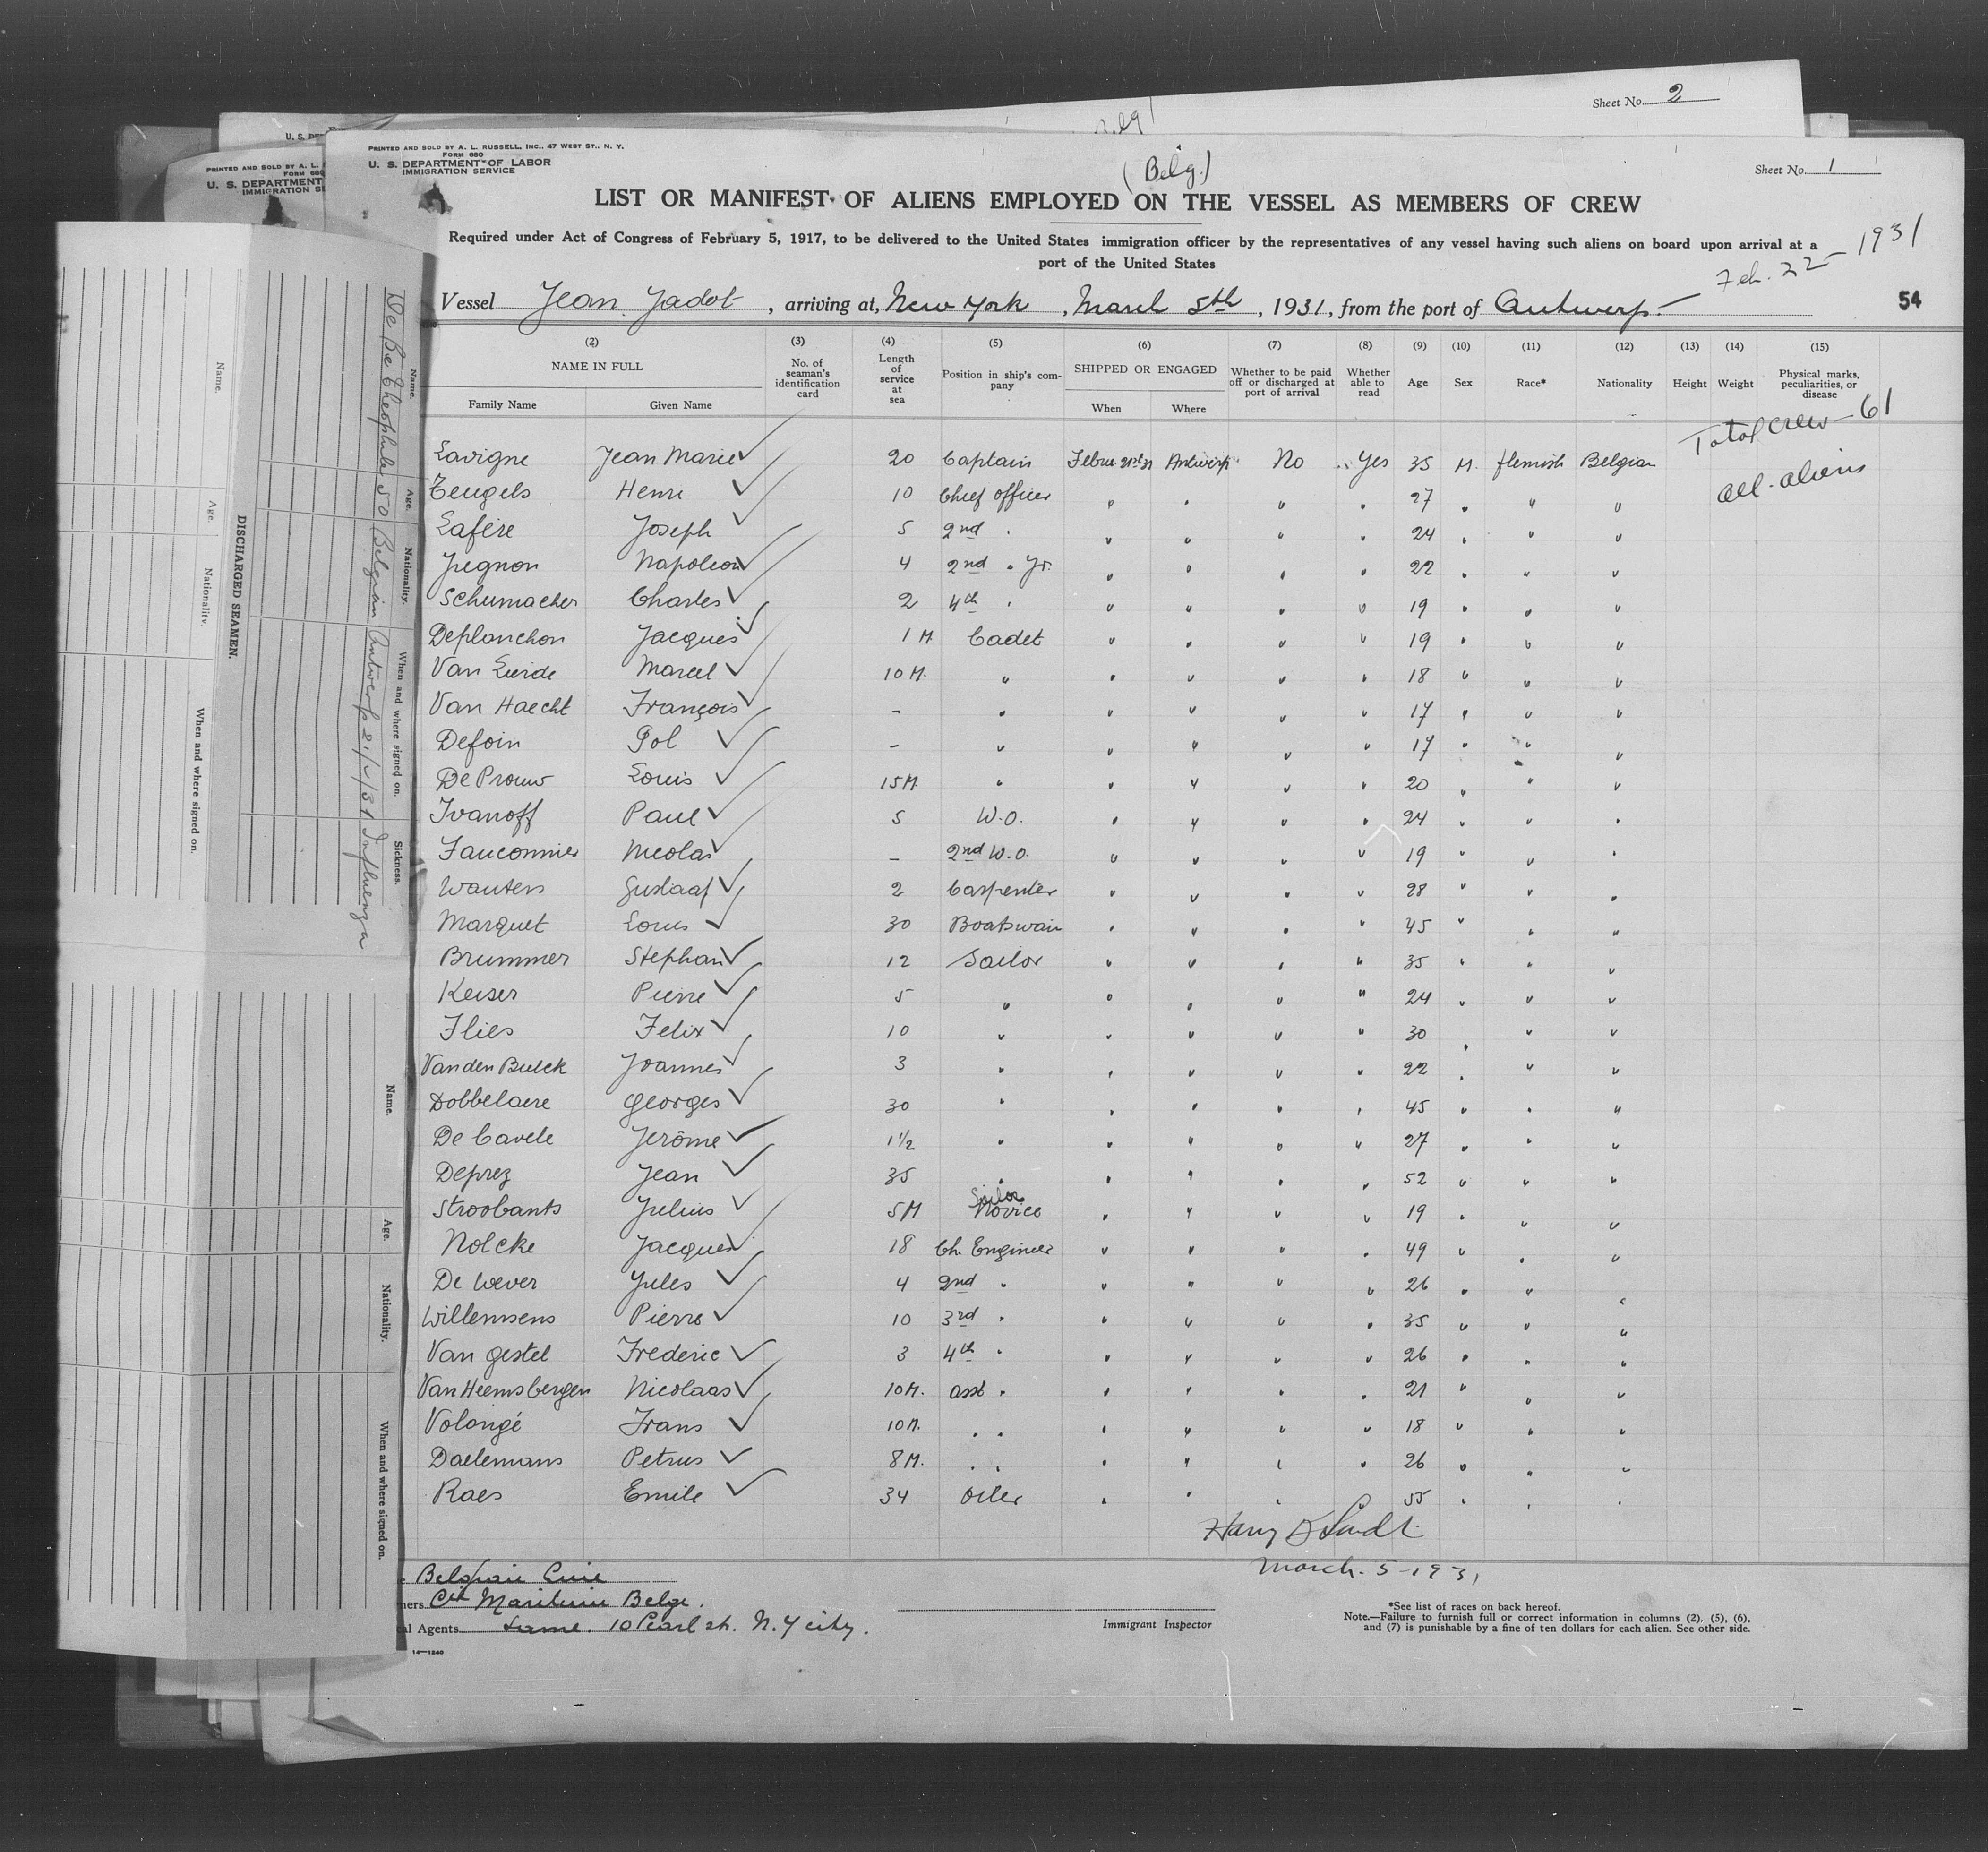 Sheet No. 2
PRINTED AND SOLD BY A. L. RUSSELL, INC., 47 WEST ST., N. Y.
FORM 680
U. S. DEPARTMENT OF LABOR
IMMIGRATION SERVICE
Sheet No. 1
(Belg.)
LIST OR MANIFEST OF ALIENS EMPLOYED ON THE VESSEL AS MEMBERS OF CREW
Required under Act of Congress of February 5, 1917, to be delivered to the United States immigration officer by the representatives of any vessel having such aliens on board upon arrival at a
port of the United States
Feb. 22 - 1931
Vessel Jean Jadot, arriving at, New York, March 5th, 1931, from the port of Antwerp.-
54
(2) (3) (4) (5) (6) (7) (8) (9) (10) (11) (12) (13) (14) (15)
NAME IN FULL No. of seaman's identification card Length of service at sea Position in ship's company SHIPPED OR ENGAGED Whether to be paid off or discharged at port of arrival Whether able to read Age Sex Race* Nationality Height Weight Physical marks, peculiarities, or disease
Family Name Given Name When Where
Total crew - 61
all aliens
Lavigne Jean Marie 20 Captain Febru 21st 31 Antwerp No Yes 35 M. flemish Belgian
Teugels Henri 10 Chief officer " " " " 27 " " "
Lafère Joseph 5 2nd " " " " " 24 " " "
Jugnon Napoleon 4 2nd " Jr. " " " " 22 " " "
Schumacher Charles 2 4th " " " " " 19 " " "
Deplanchon Jacques 1 M Cadet " " " " 19 " " "
Van Lierde Marcel 10 M. " " " " " 18 " " "
Van Haecht François - " " " " " 17 " " "
Defoin Pol - " " " " " 17 " " "
De Prouw Louis 15 M. " " " " " 20 " " "
Ivanoff Paul 5 W.O. " " " " 24 " " "
Fauconnier Nicolas - 2nd W.O. " " " " 19 " " "
Wauters Gustaaf 2 Carpenter " " " " 28 " " "
Marquet Louis 30 Boatswain " " " " 45 " " "
Brummer Stephan 12 Sailor " " " " 35 " " "
Keiser Pierre 5 " " " " " 24 " " "
Flies Felix 10 " " " " " 30 " " "
Van den Bulck Joannes 3 " " " " " 22 " " "
Dobbelaere Georges 30 " " " " " 45 " " "
De Cavele Jerôme 1 1/2 " " " " " 27 " " "
Deprez Jean 35 " " " " " 52 " " "
Stroobants Julius 5 M Sailor Novice " " " " 19 " " "
Nolcke Jacques 18 Ch. Engineer " " " " 49 " " "
De Wever Jules 4 2nd " " " " " 26 " " "
Willemsens Pierre 10 3rd " " " " " 35 " " "
Van Gestel Frederic 3 4th " " " " " 26 " " "
Van Heemsbergen Nicolaas 10 M. asst " " " " " 21 " " "
Volongé Frans 10 M. " " " " " " 18 " " "
Daelemans Petrus 8 M. " " " " " " 26 " " "
Raes Emile 34 Oiler " " " 55 " " "
March. 5 - 1931
Belgian Line
Cie Maritime Belge.
Agents Same. 10 Pearl st. N. Y city.
Immigrant Inspector
*See list of races on back hereof.
Note.—Failure to furnish full or correct information in columns (2), (5), (6),
and (7) is punishable by a fine of ten dollars for each alien. See other side.
14—1240
DISCHARGED SEAMEN.
Name. Age. Nationality. When and where signed on. Sickness.
De Be Theophile 50 Belgian Antwerp 21/2/31 Influenza
Name. Age. Nationality. When and where signed on.
Name. Age. Nationality. When and where signed on.